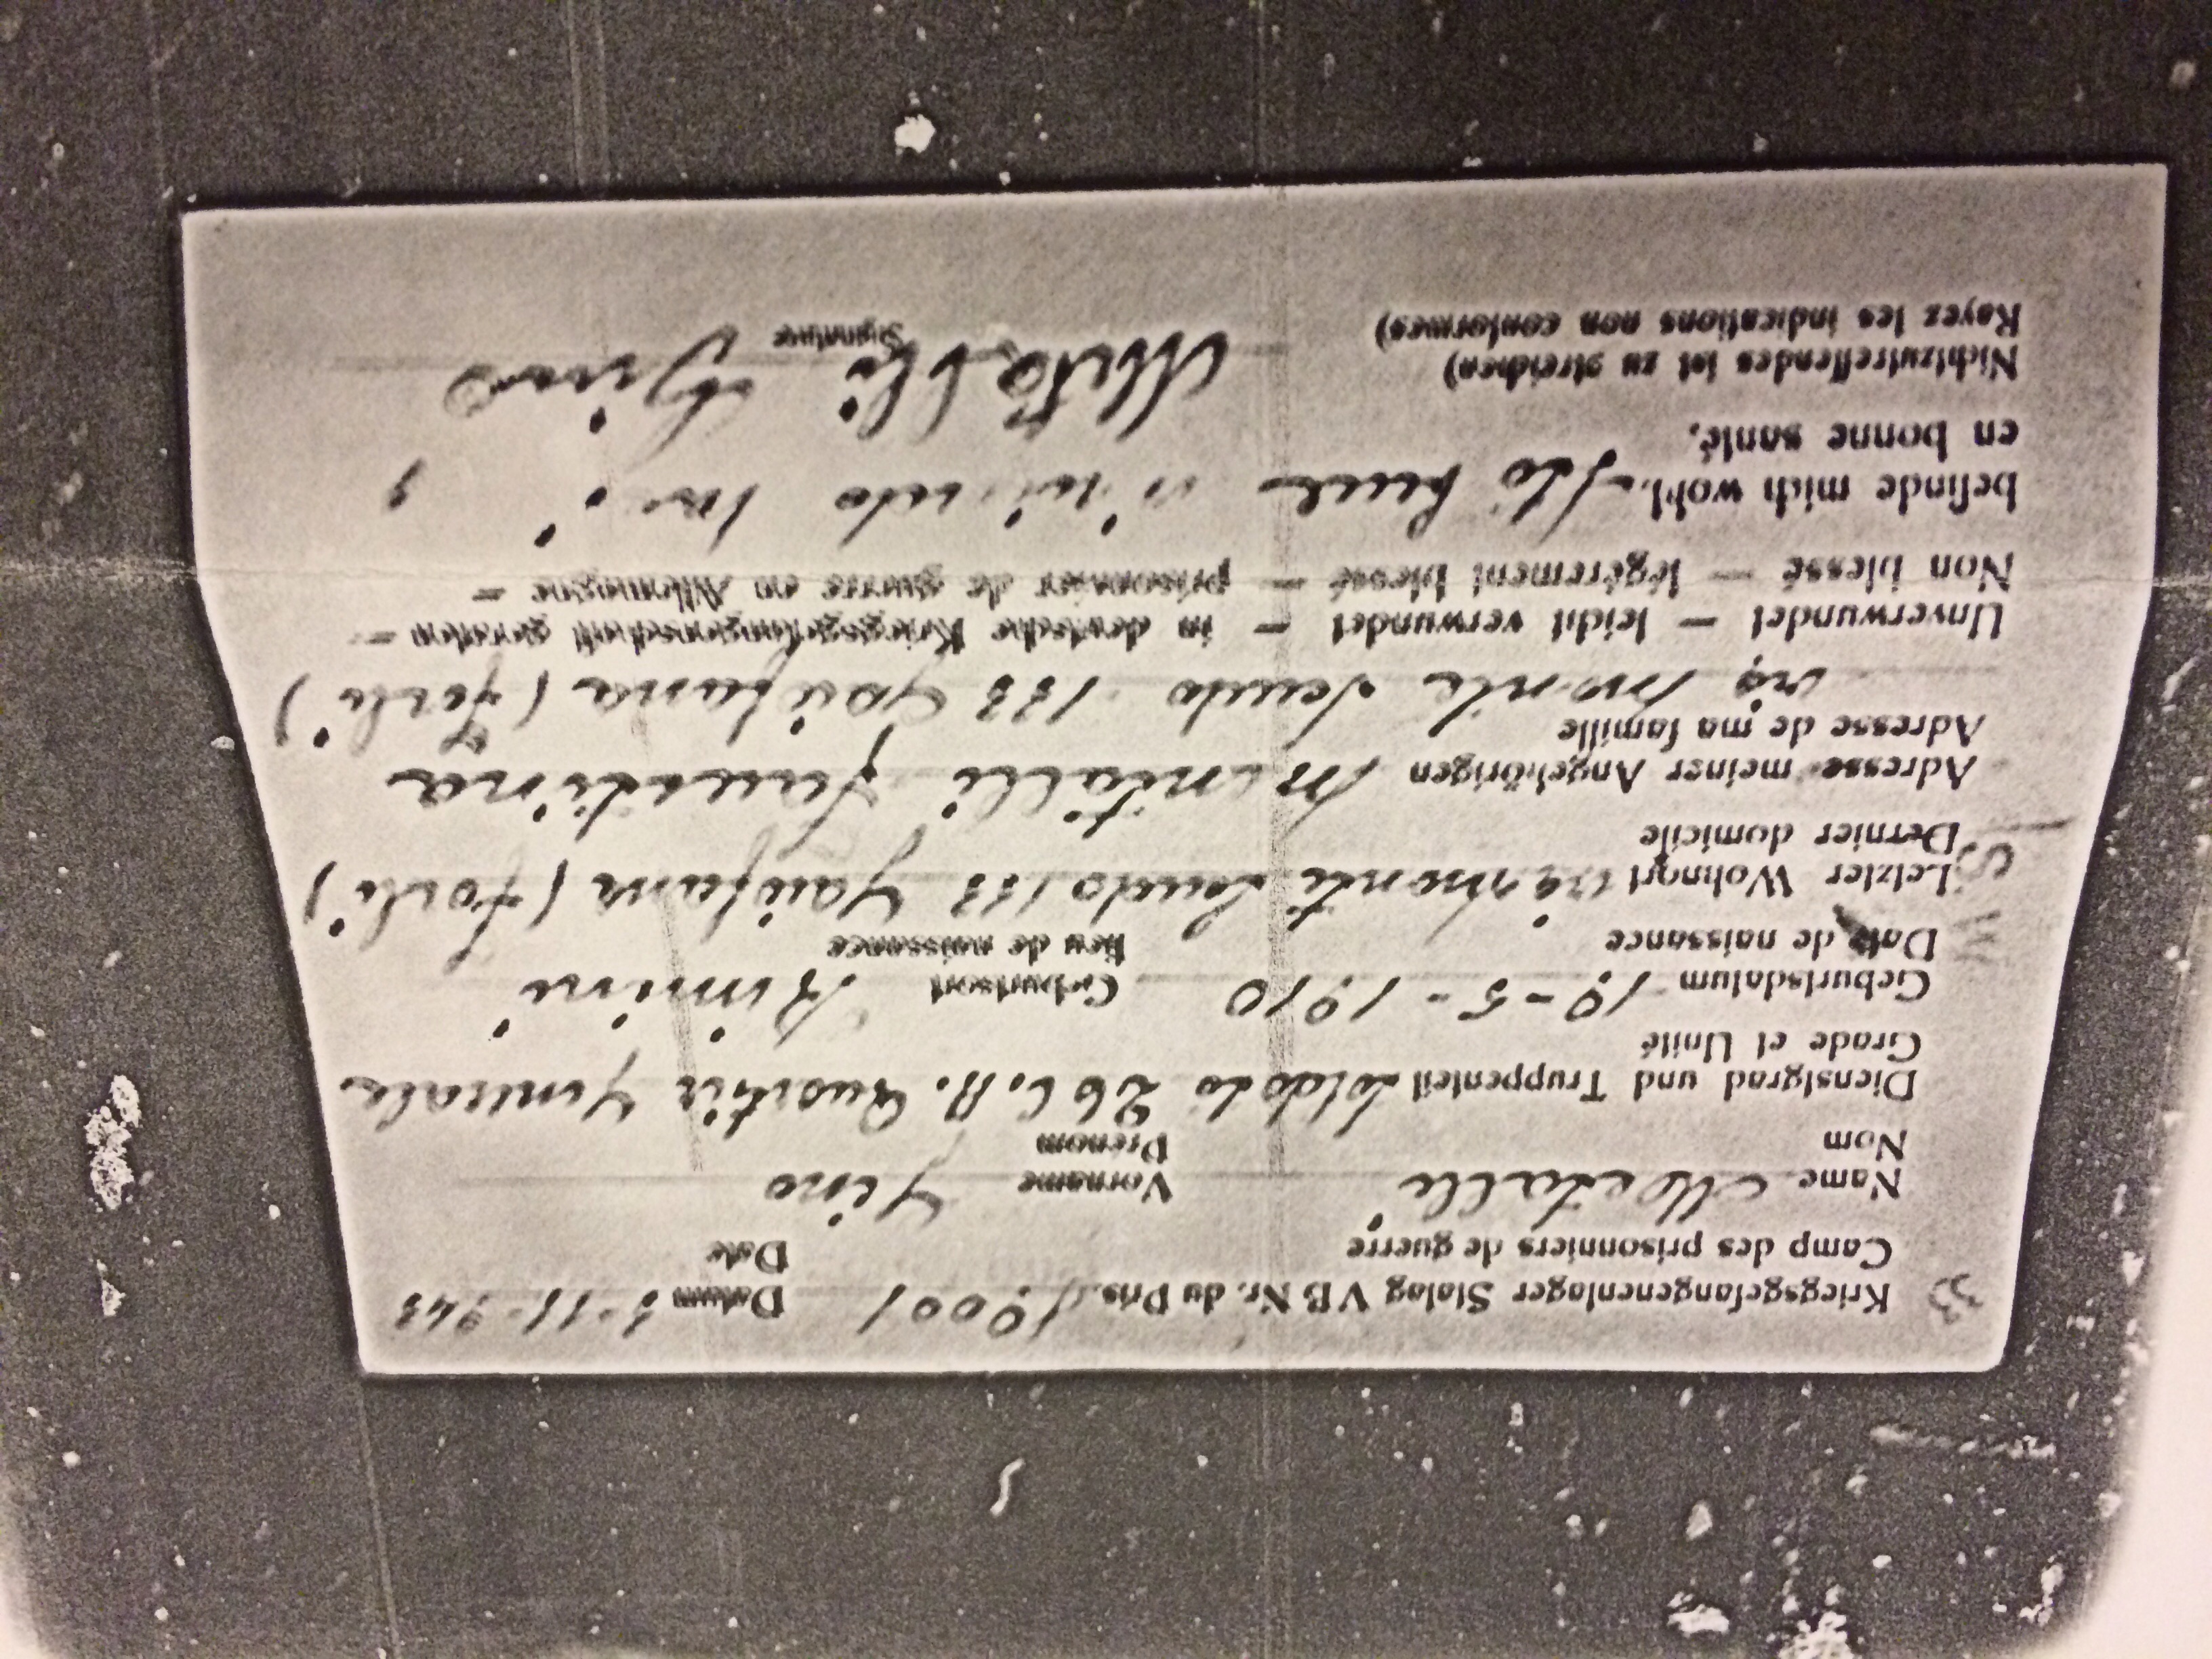 Kriegsgefangenenlager Stalag VB Nr. du Pris. 19001 Datum 5-11-943
Camp des prisonniers de guerre Date
Name Vorname Gino
Nom Prenom
Dienstgrad und Truppenteil soldato 26 C.A. Quartier Generale
Grade et Unité
Geburtsdatum 19-5-1910 Geburtsort Rimini
Date de naissance lieu de naissance
Letzter Wohnort (Forlì)
Dernier domicile
Adresse meiner Angehörigen Faustina
Adresse de ma famille
(Forlì)
Unverwundet — leicht verwundet — in deutsche Kriegsgefangenschaft geraten —
Non blessé — légèrement blessé — prisonnier de guerre en Allemagne —
befinde mich wohl. Sto bene
en bonne santé.
Nichtzutreffendes ist zu streichen) Gino
Rayez les indications non conformes) Signature